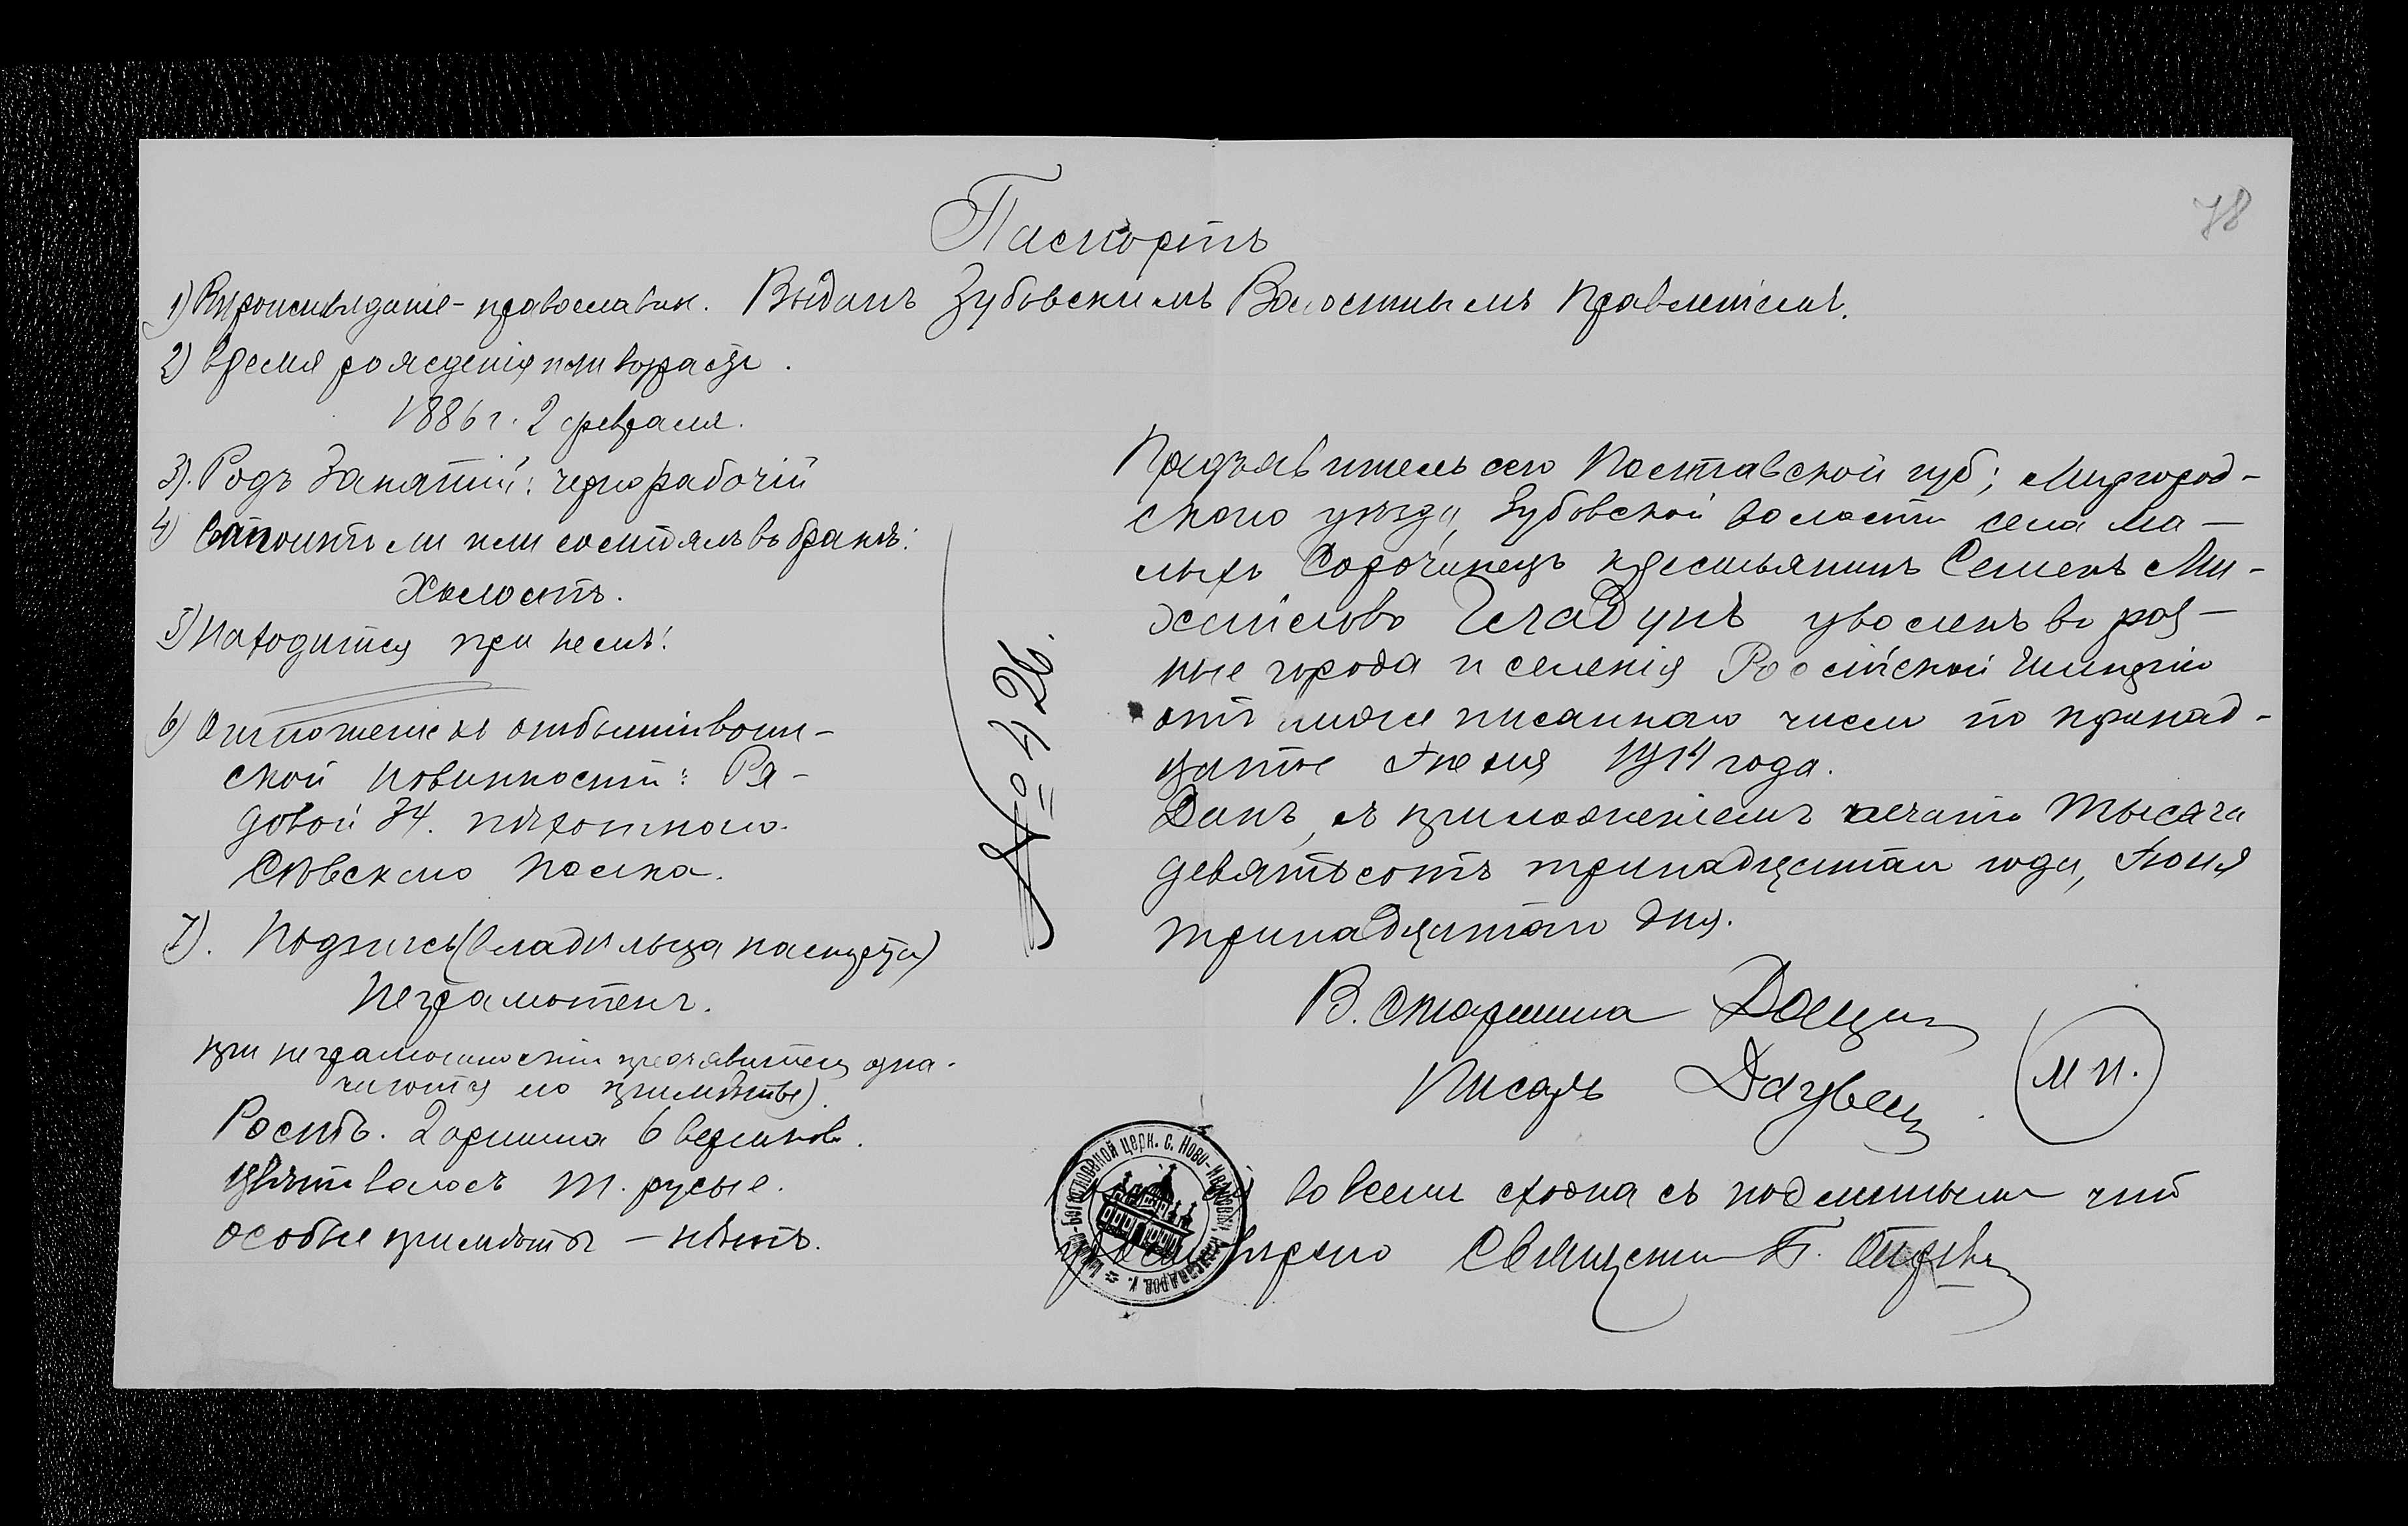 78
Паспортъ
1) Вѣроисповѣданіе - православн. Выданъ Зубовскимъ Волостнымъ Правленіемъ.
2) Время рожденія или возрастъ.
1886 г. 2 февраля.
3). Родъ Занятій: чернорабочій
4) Состоитъ ли или состоялъ въ бракѣ:
Холостъ.
5) Находится при немъ:
6) Отношеніе къ отбытію воин-
ской повинности: Ря-
довой 34. пѣхотнаго
Сѣвскаго полка.
7). Подпись (владѣльца паспорта)
Неграмотенъ.
при неграмотности предъявителя озна-
чаются его примѣты).
Ростъ. 2 аршина 6 вершков.
Цвѣтъ волосъ т. русые.
особые примѣты - нѣтъ.
№ 426.
Предъявитель сего Полтавской губ; Миргород-
скаго уѣзда, Зубовской волости села Ма-
лыхъ Сорочинецъ крестьянинъ Семенъ Ми-
хайлово Гладунъ уволенъ въ раз-
ные города и селенія Россійской Имперіи
отъ ниже писаннаго числа по тринад-
цатое Іюня 1914 года.
Данъ, съ приложеніемъ печати Тысяча
девятьсотъ тринадцатаго года, Іюня
тринадцатаго дня.
В. Старшина
Писарь
М п.
во всемъ сходна съ подлинным что
Священник П.
церк. с. Ново-Ивановки, Александров. у.